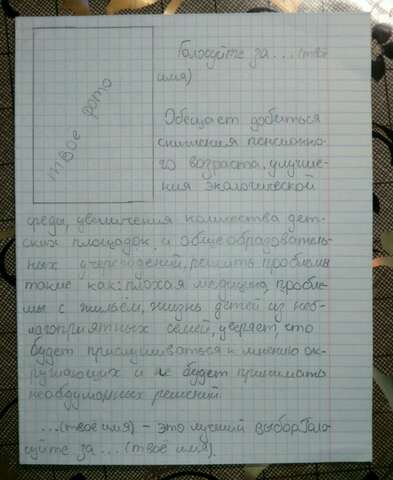 твое фото
Голосуйте за...(твоё
имя)
Обещает добиться
снижения пенсионно-
го возраста, улучше-
ния экологической
среды, увеличения количества дет-
ских площадок и общеобразователь-
ных учереждений, решить проблемы
такие как: плохая медицина, пробле-
мы с жильём, жизнь детей из неб-
лагоприятных семей, уверяет, что
будет прислушиваться к мнению ок-
ружающих и не будет принимать
необдуманных решений.
...(твоё имя) - это лучший выбор. Голо-
суйте за...(твоё имя).